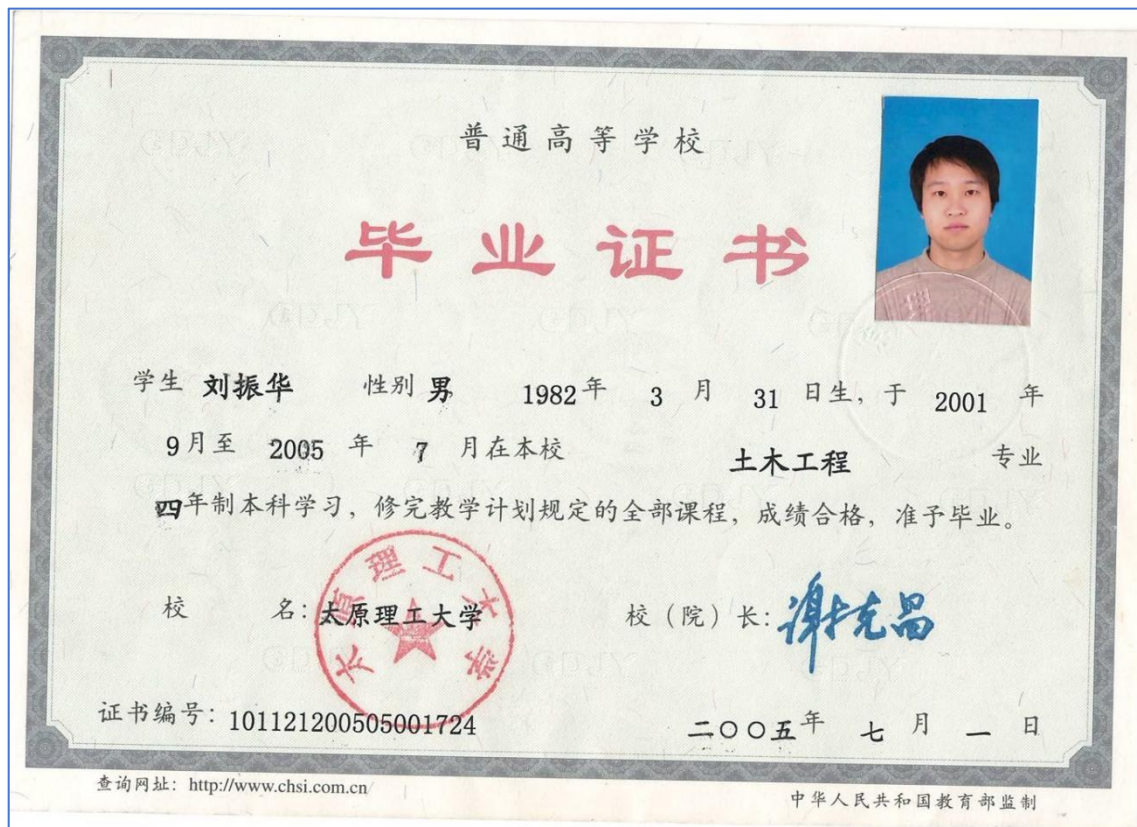 普通高等学校
毕业证书
学生 刘振华 性别 男 1982年 3 月 31 日生，于 2001 年
9月至 2005 年 7 月在本校 土木工程 专业
四年制本科学习，修完教学计划规定的全部课程，成绩合格，准予毕业。
校 名：太原理工大学 校（院）长：谢克昌
太原理工大学
证书编号：101121200505001724 二〇〇五年 七 月 一 日
查询网址：http://www.chsi.com.cn/ 中华人民共和国教育部监制